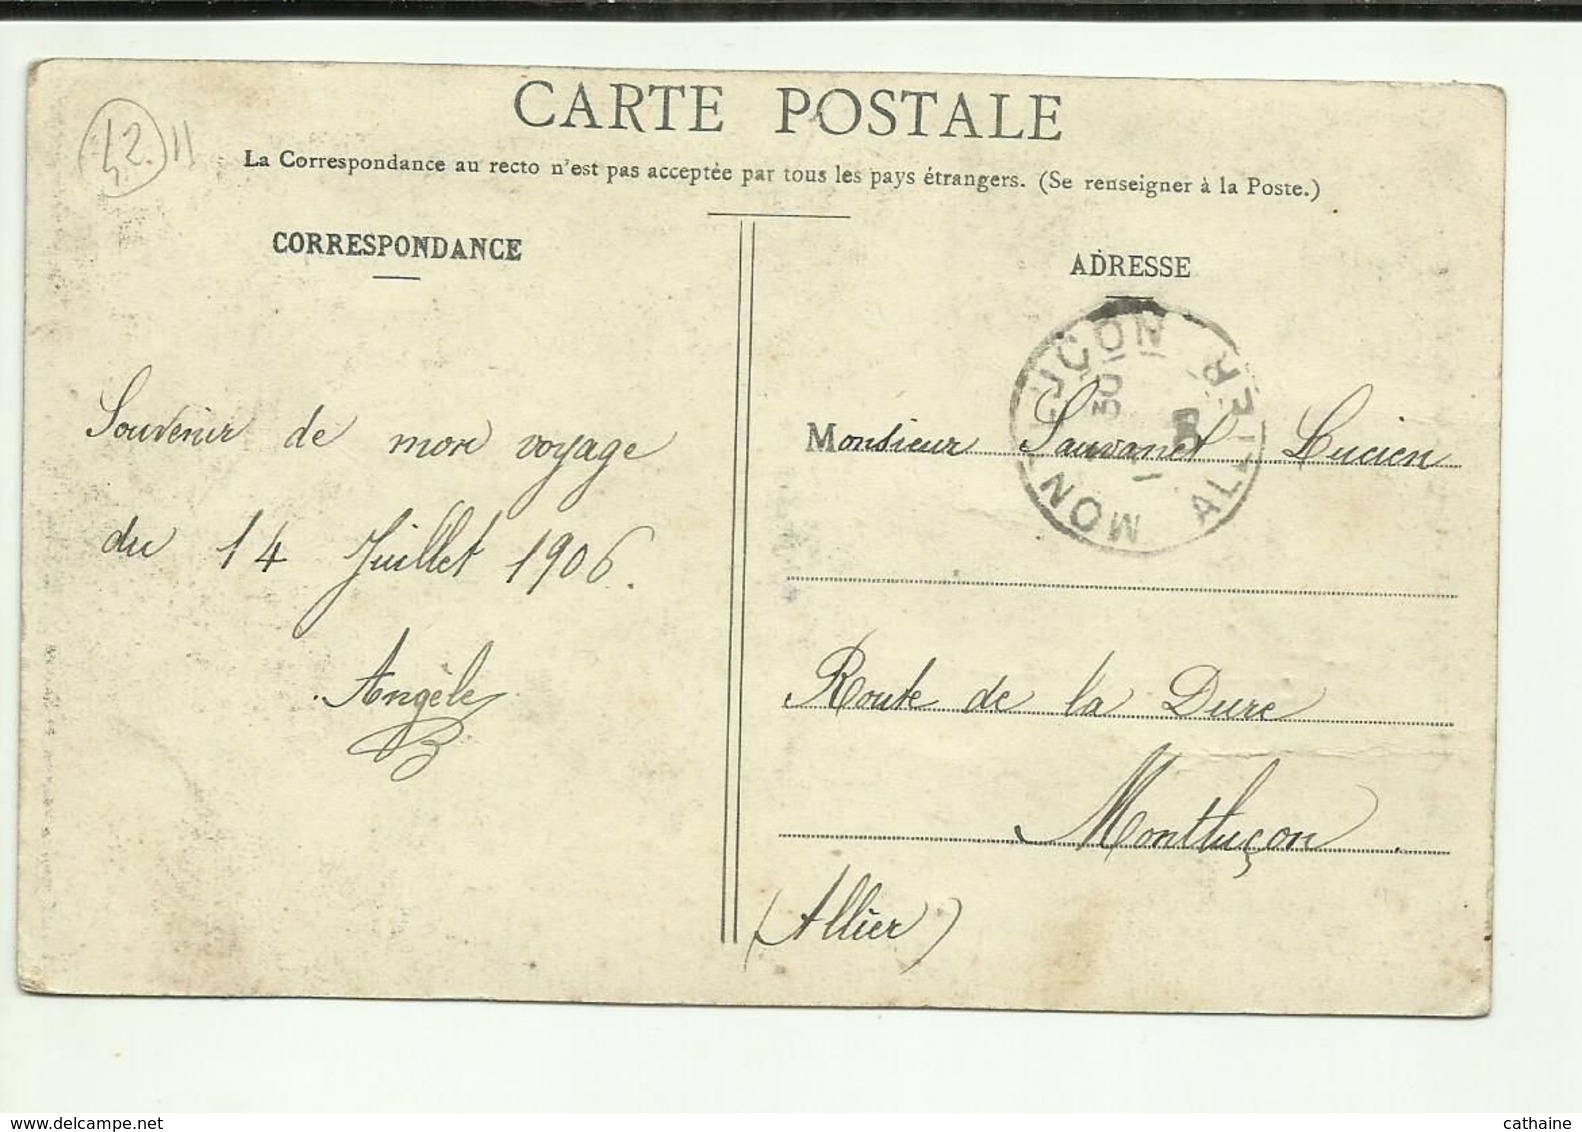 CARTE POSTALE
La Correspondance au recto n'est pas acceptée par tous les pays étrangers. (Se renseigner à la Poste.)
CORRESPONDANCE
Souvenir de mon voyage
du 14 Juillet 1906.
Angèle
ADRESSE
MONTLUÇON
ALLIER
Monsieur Sauvanet Lucien
Route de la Dure
Montluçon.
(Allier)
42.
11
cathaine